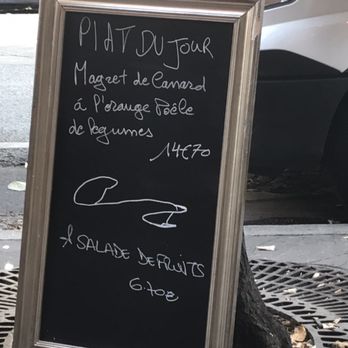 PLAT DU JOUR
Magret de Canard
à l'orange Poêle
de légumes
14€70
SALADE DE FRUITS
6.70€